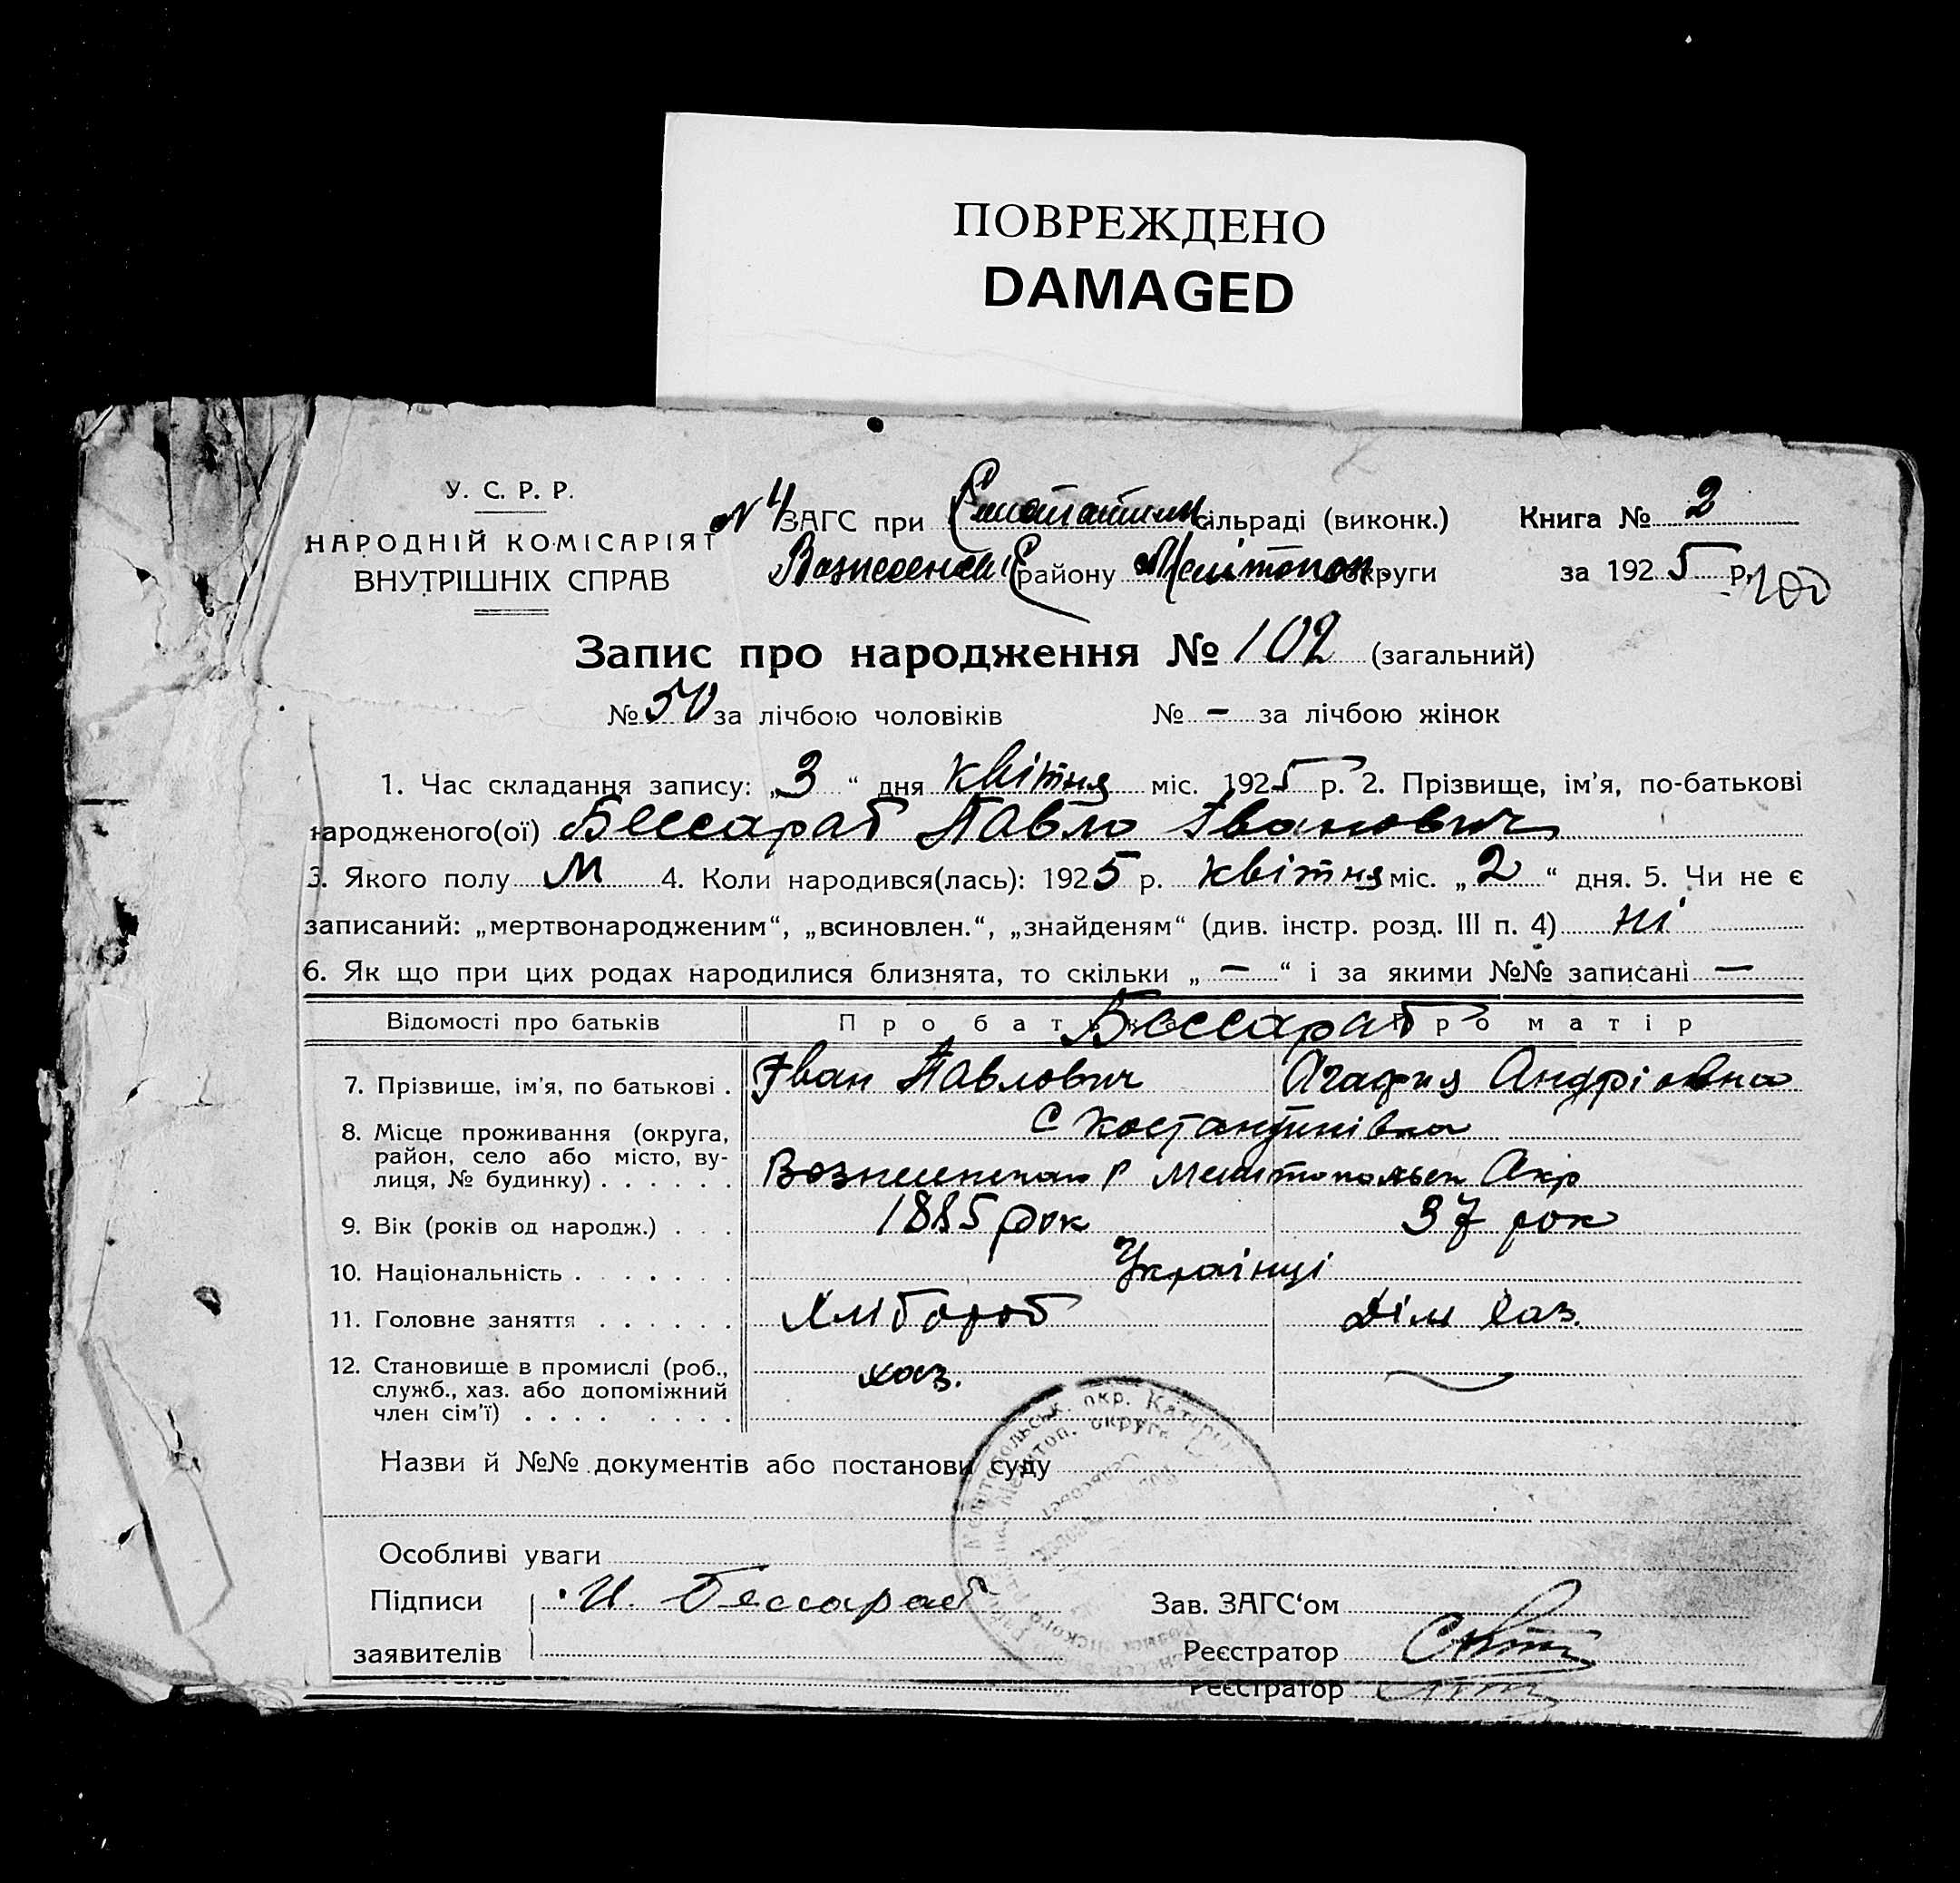 ПОВРЕЖДЕНО
DAMAGED
У. С. Р. Р.
НАРОДНІЙ КОМІСАРІЯТ
ВНУТРІШНІХ СПРАВ
N 4 ЗАГС при сільраді (виконк.)
району округи
Книга № 2
за 1925 р. 100
Запис про народження № 102 (загальний)
№ 50 за лічбою чоловіків № – за лічбою жінок
1. Час складання запису: „3“ дня квітня міс. 1925 р. 2. Прізвище, ім’я, по-батькові
народженого(ої) Бессараб Павло Іванович
3. Якого полу М 4. Коли народився(лась): 1925 р. квітня міс. „2“ дня. 5. Чи не є
записаний: „мертвонародженим“, „всиновлен.“, „знайденям“ (див. інстр. розд. III п. 4) ні
6. Як що при цих родах народилися близнята, то скільки „ – “ і за якими №№ записані –
Відомості про батьків Про батька Про матір
Бессараб
7. Прізвище, ім’я, по батькові . Іван Павлович Агафия Андріовна
8. Місце проживання (округа, район, село або місто, вулиця, № будинку) . . . . . . с Костантинівка
Р Окр
9. Вік (років од народж.) . . . 1885 рок 37 рок
10. Національність . . . . . . Українці
11. Головне заняття . . . . . . Хлібороб Дім хаз.
12. Становище в промислі (роб., служб., хаз. або допоміжний член сім’ї) . . . . . . . . хаз.
Назви й №№ документів або постанови суду
Особливі уваги
Підписи И. Бессараб Зав. ЗАГС‘ом
заявителів Реєстратор
Реєстратор